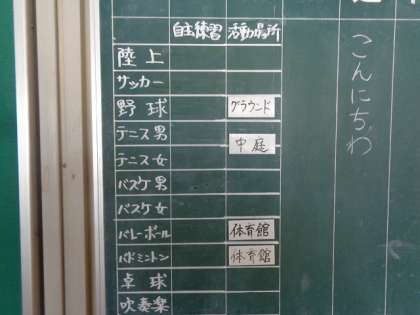 自主練習 活動場所
陸上
サッカー
野球 グラウンド
テニス男 中庭
テニス女
バスケ男
バスケ女
バレーボール 体育館
バドミントン 体育館
卓球
吹奏楽
こんにちわ